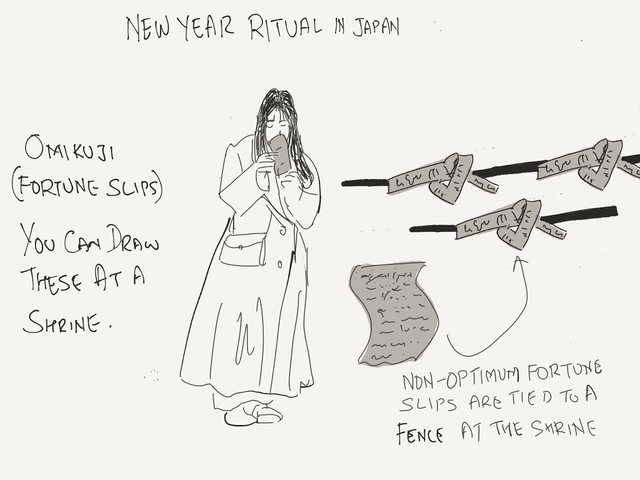 NEW YEAR RITUAL IN JAPAN
OMIKUJI
(FORTUNE SLIPS)
YOU CAN DRAW
THESE AT A
SHRINE.
NON-OPTIMUM FORTUNE
SLIPS ARE TIED TO A
FENCE AT THE SHRINE